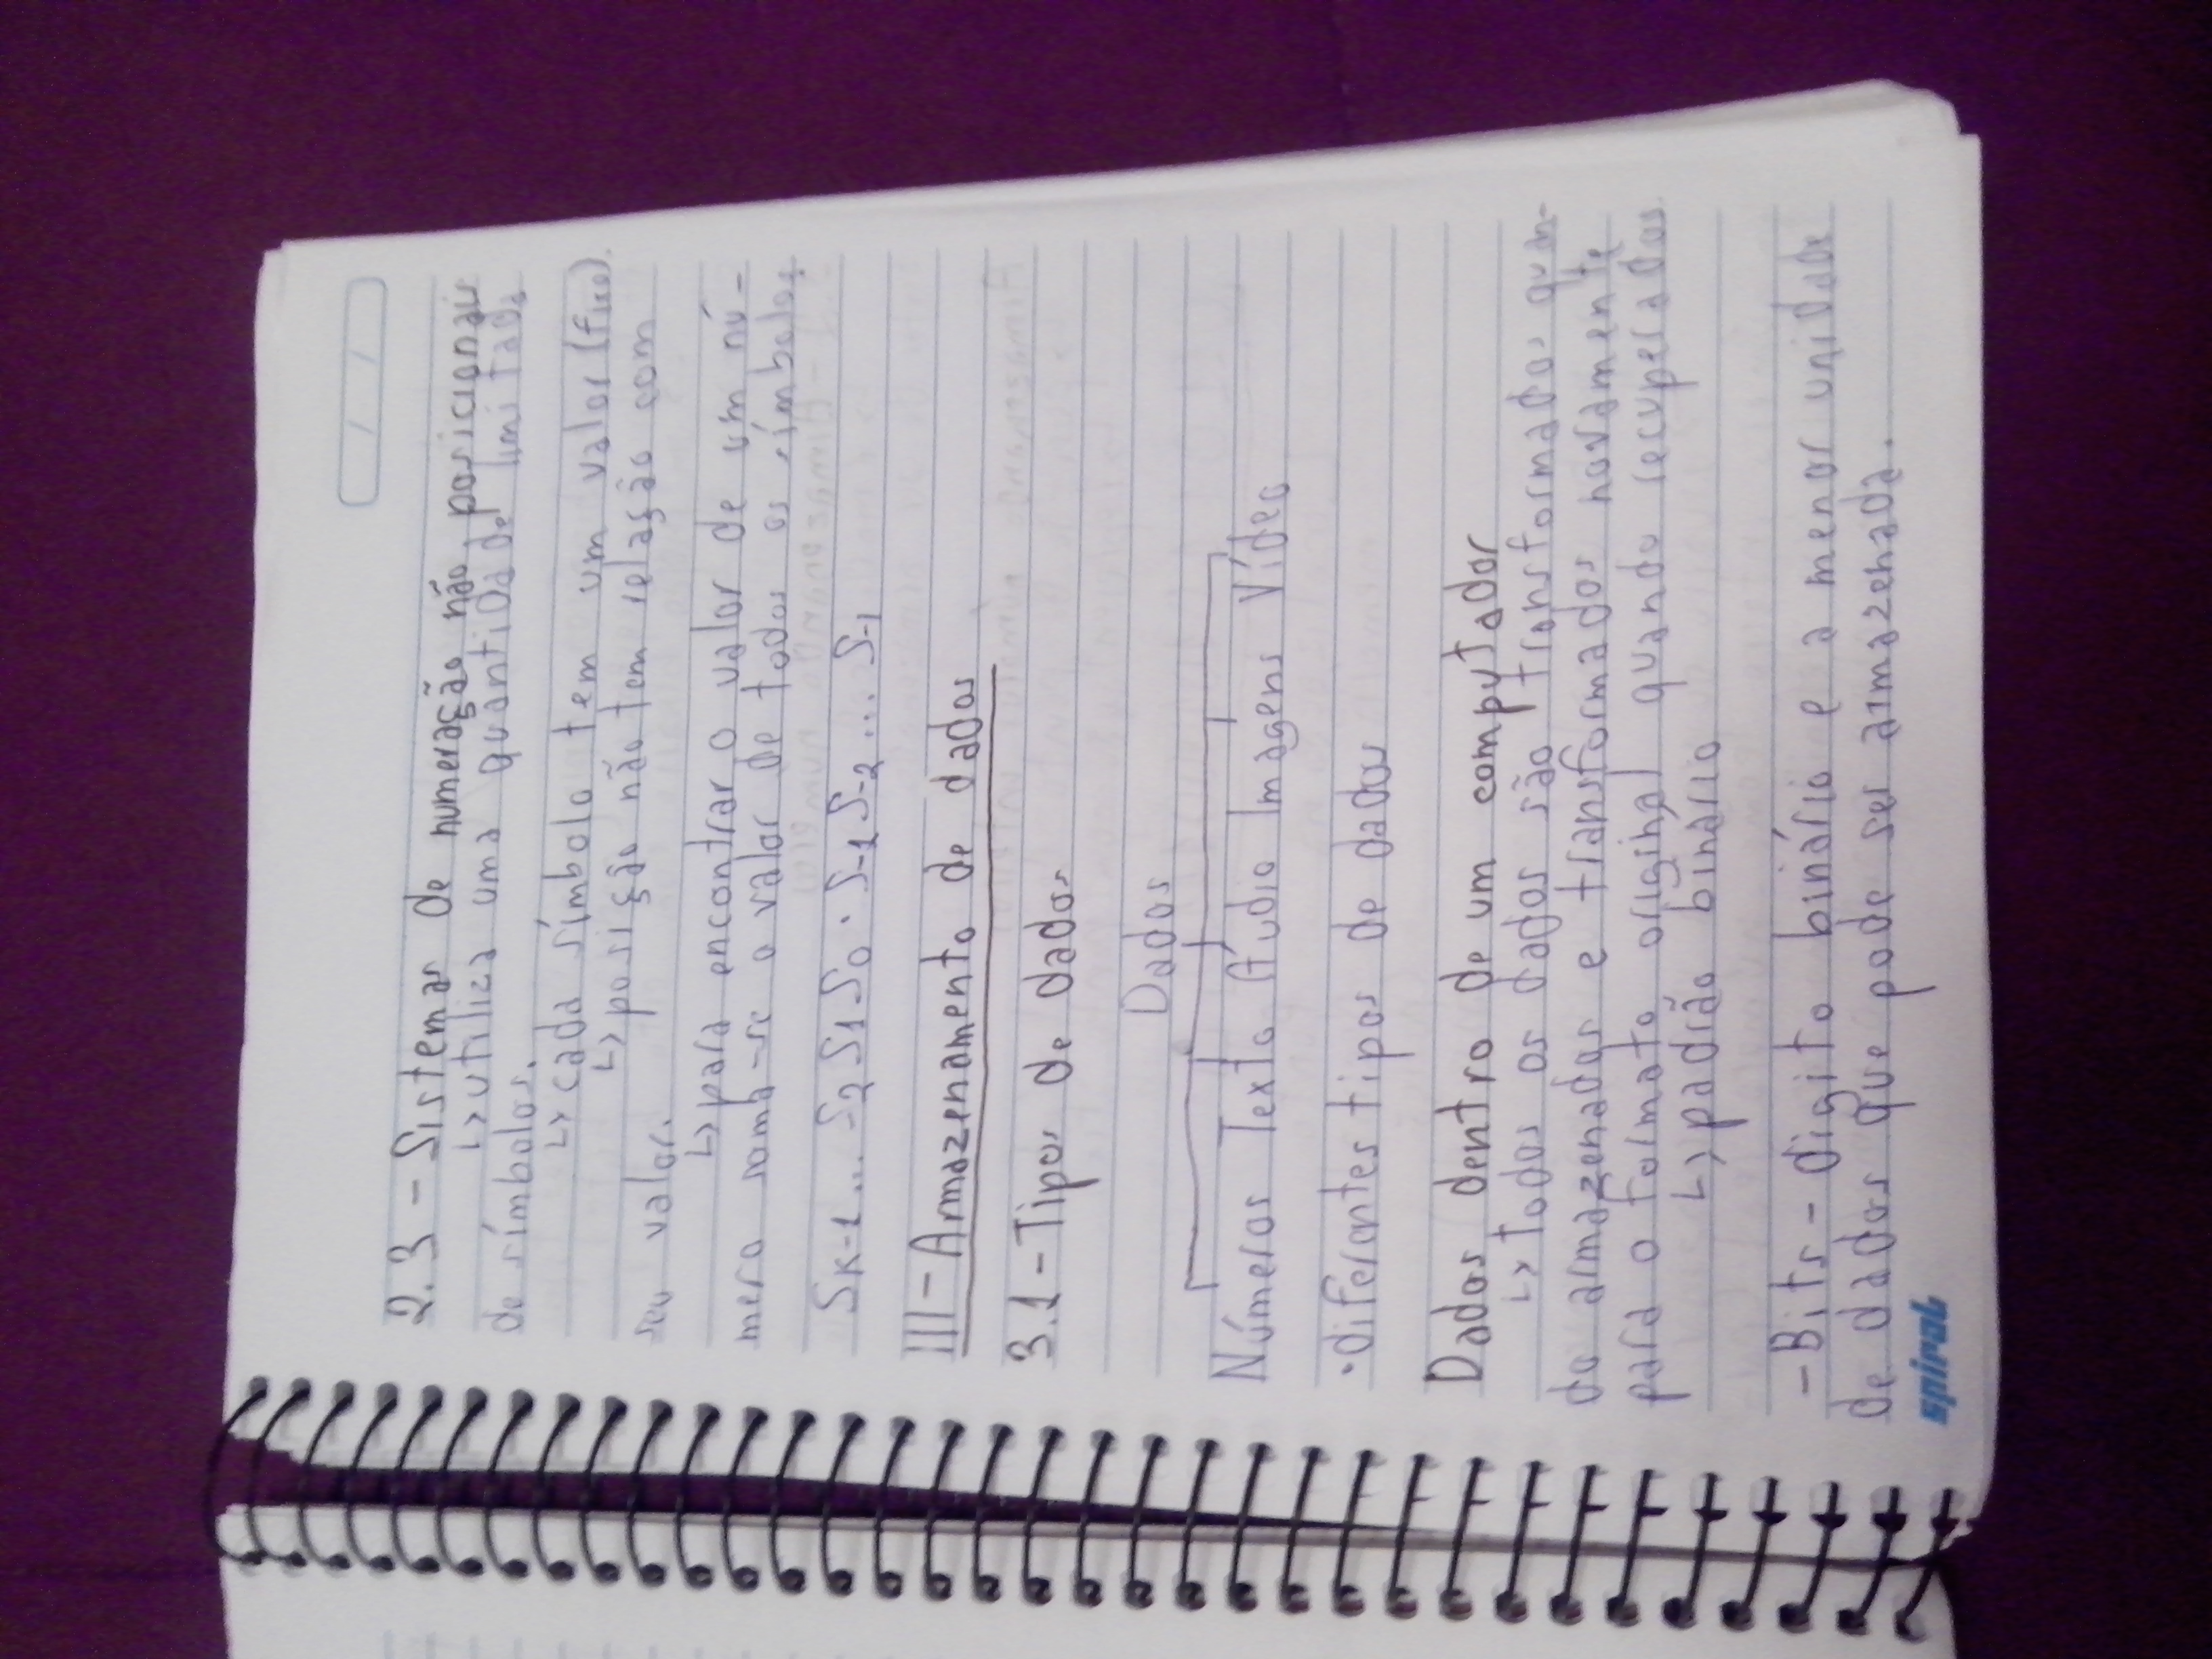 2.3 - Sistemas de numeração não posicionais
↳ utiliza uma quantidade limitada
de símbolos.
↳ cada símbolo tem um valor (fixo).
↳ posição não tem relação com
seu valor.
↳ para encontrar o valor de um nú-
mero soma-se o valor de todos os símbolos
SK-1 ... S2 S1 S0 . S-1 S-2 ... S-1
III - Armazenamento de dados
3.1 - Tipos de dados
Dados
Números Texto Áudio Imagens Vídeo
• diferentes tipos de dados
Dados dentro de um computador
↳ Todos os dados são transformados quan-
do armazenados e transformados novamente
para o formato original quando recuperados
↳ padrão binário
- Bits - digito binário e a menor unidade
de dados que pode ser armazenada.
spiral